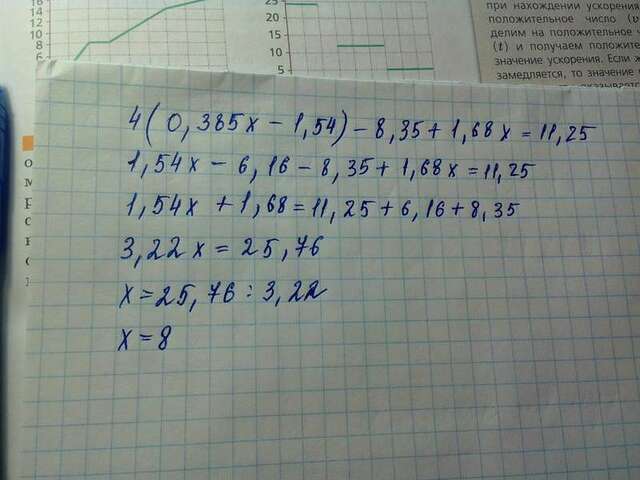 16
14
12
10
8
6
25
20
15
10
5
при нахождении ускорения
положительное число (v
делим на положительное ч
(t) и получаем положите
значение ускорения. Если ж
замедляется, то значение
4(0,385x - 1,54) - 8,35 + 1,68x = 11,25
1,54x - 6,16 - 8,35 + 1,68x = 11,25
1,54x + 1,68 = 11,25 + 6,16 + 8,35
3,22x = 25,76
x = 25,76 : 3,22
x = 8